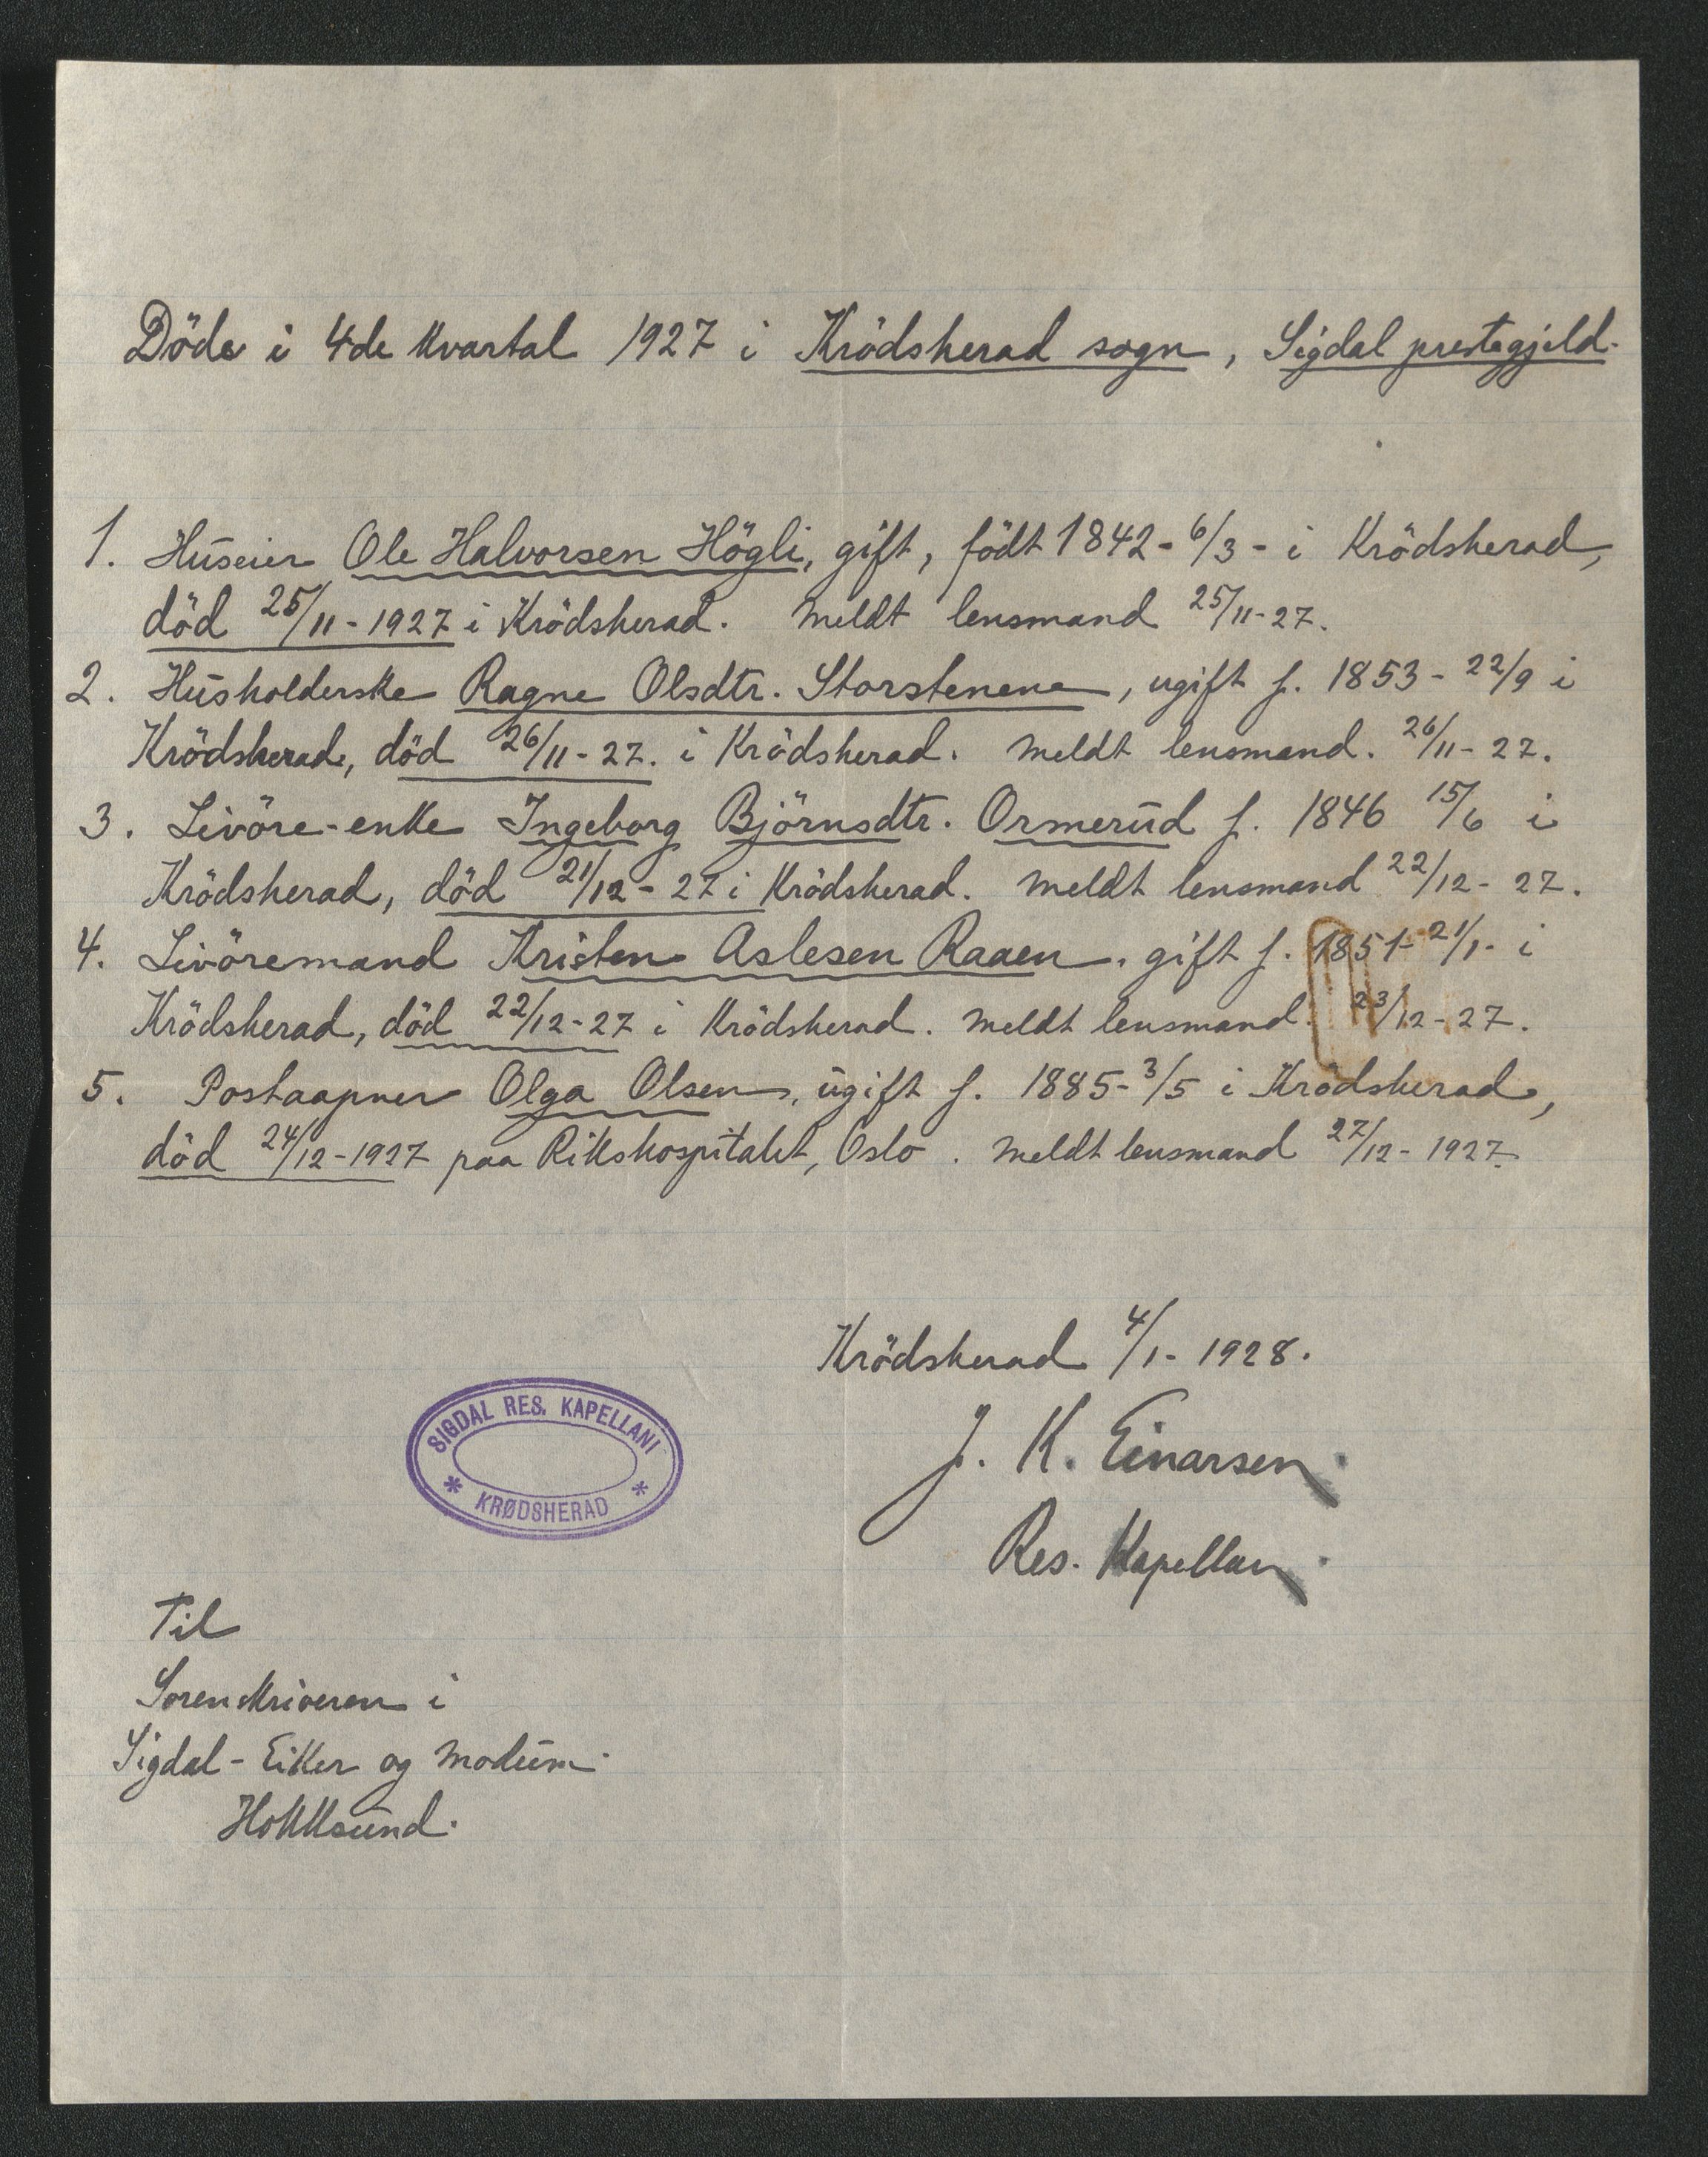 Döde i 4de Kvartal 1927 i Krödsherad sogn, Sigdal prestegjeld.
1. Huseier Ole Halvorsen Högli, gift, födt 1842-6/3- i Krödsherad,
död 25/11-1927 i Krödsherad. Meldt lensmand 25/11-27.
2. Husholderske Ragne Olsdtr. Storstenene, ugift f. 1853-22/9 i
Krödsherad, död 26/11-27. i Krödsherad. Meldt lensmand. 26/11-27.
3. Livöre-enke Ingeborg Björnsdtr. Ormerud f. 1846 15/6 i
Krödsherad, död 21/12-27 i Krödsherad. Meldt lensmand 22/12-27.
4. Livöremand Kristen Aslesen Raaen, gift f. 1851-21/1- i
Krödsherad, död 22/12-27 i Krödsherad. Meldt lensmand. 23/12-27.
5. Postaapner Olga Olsen, ugift f. 1885-3/5 i Krödsherad,
död 24/12-1927 paa Rikshospitalet, Oslo. Meldt lensmand 27/12-1927.
Krödsherad 4/1-1928.
J. K. Einarsen.
Res. Kapellan.
SIGDAL RES. KAPELLANI
* KRØDSHERAD *
Til
Sorenskriveren i
Sigdal-Eiker og Modum.
Hokksund.